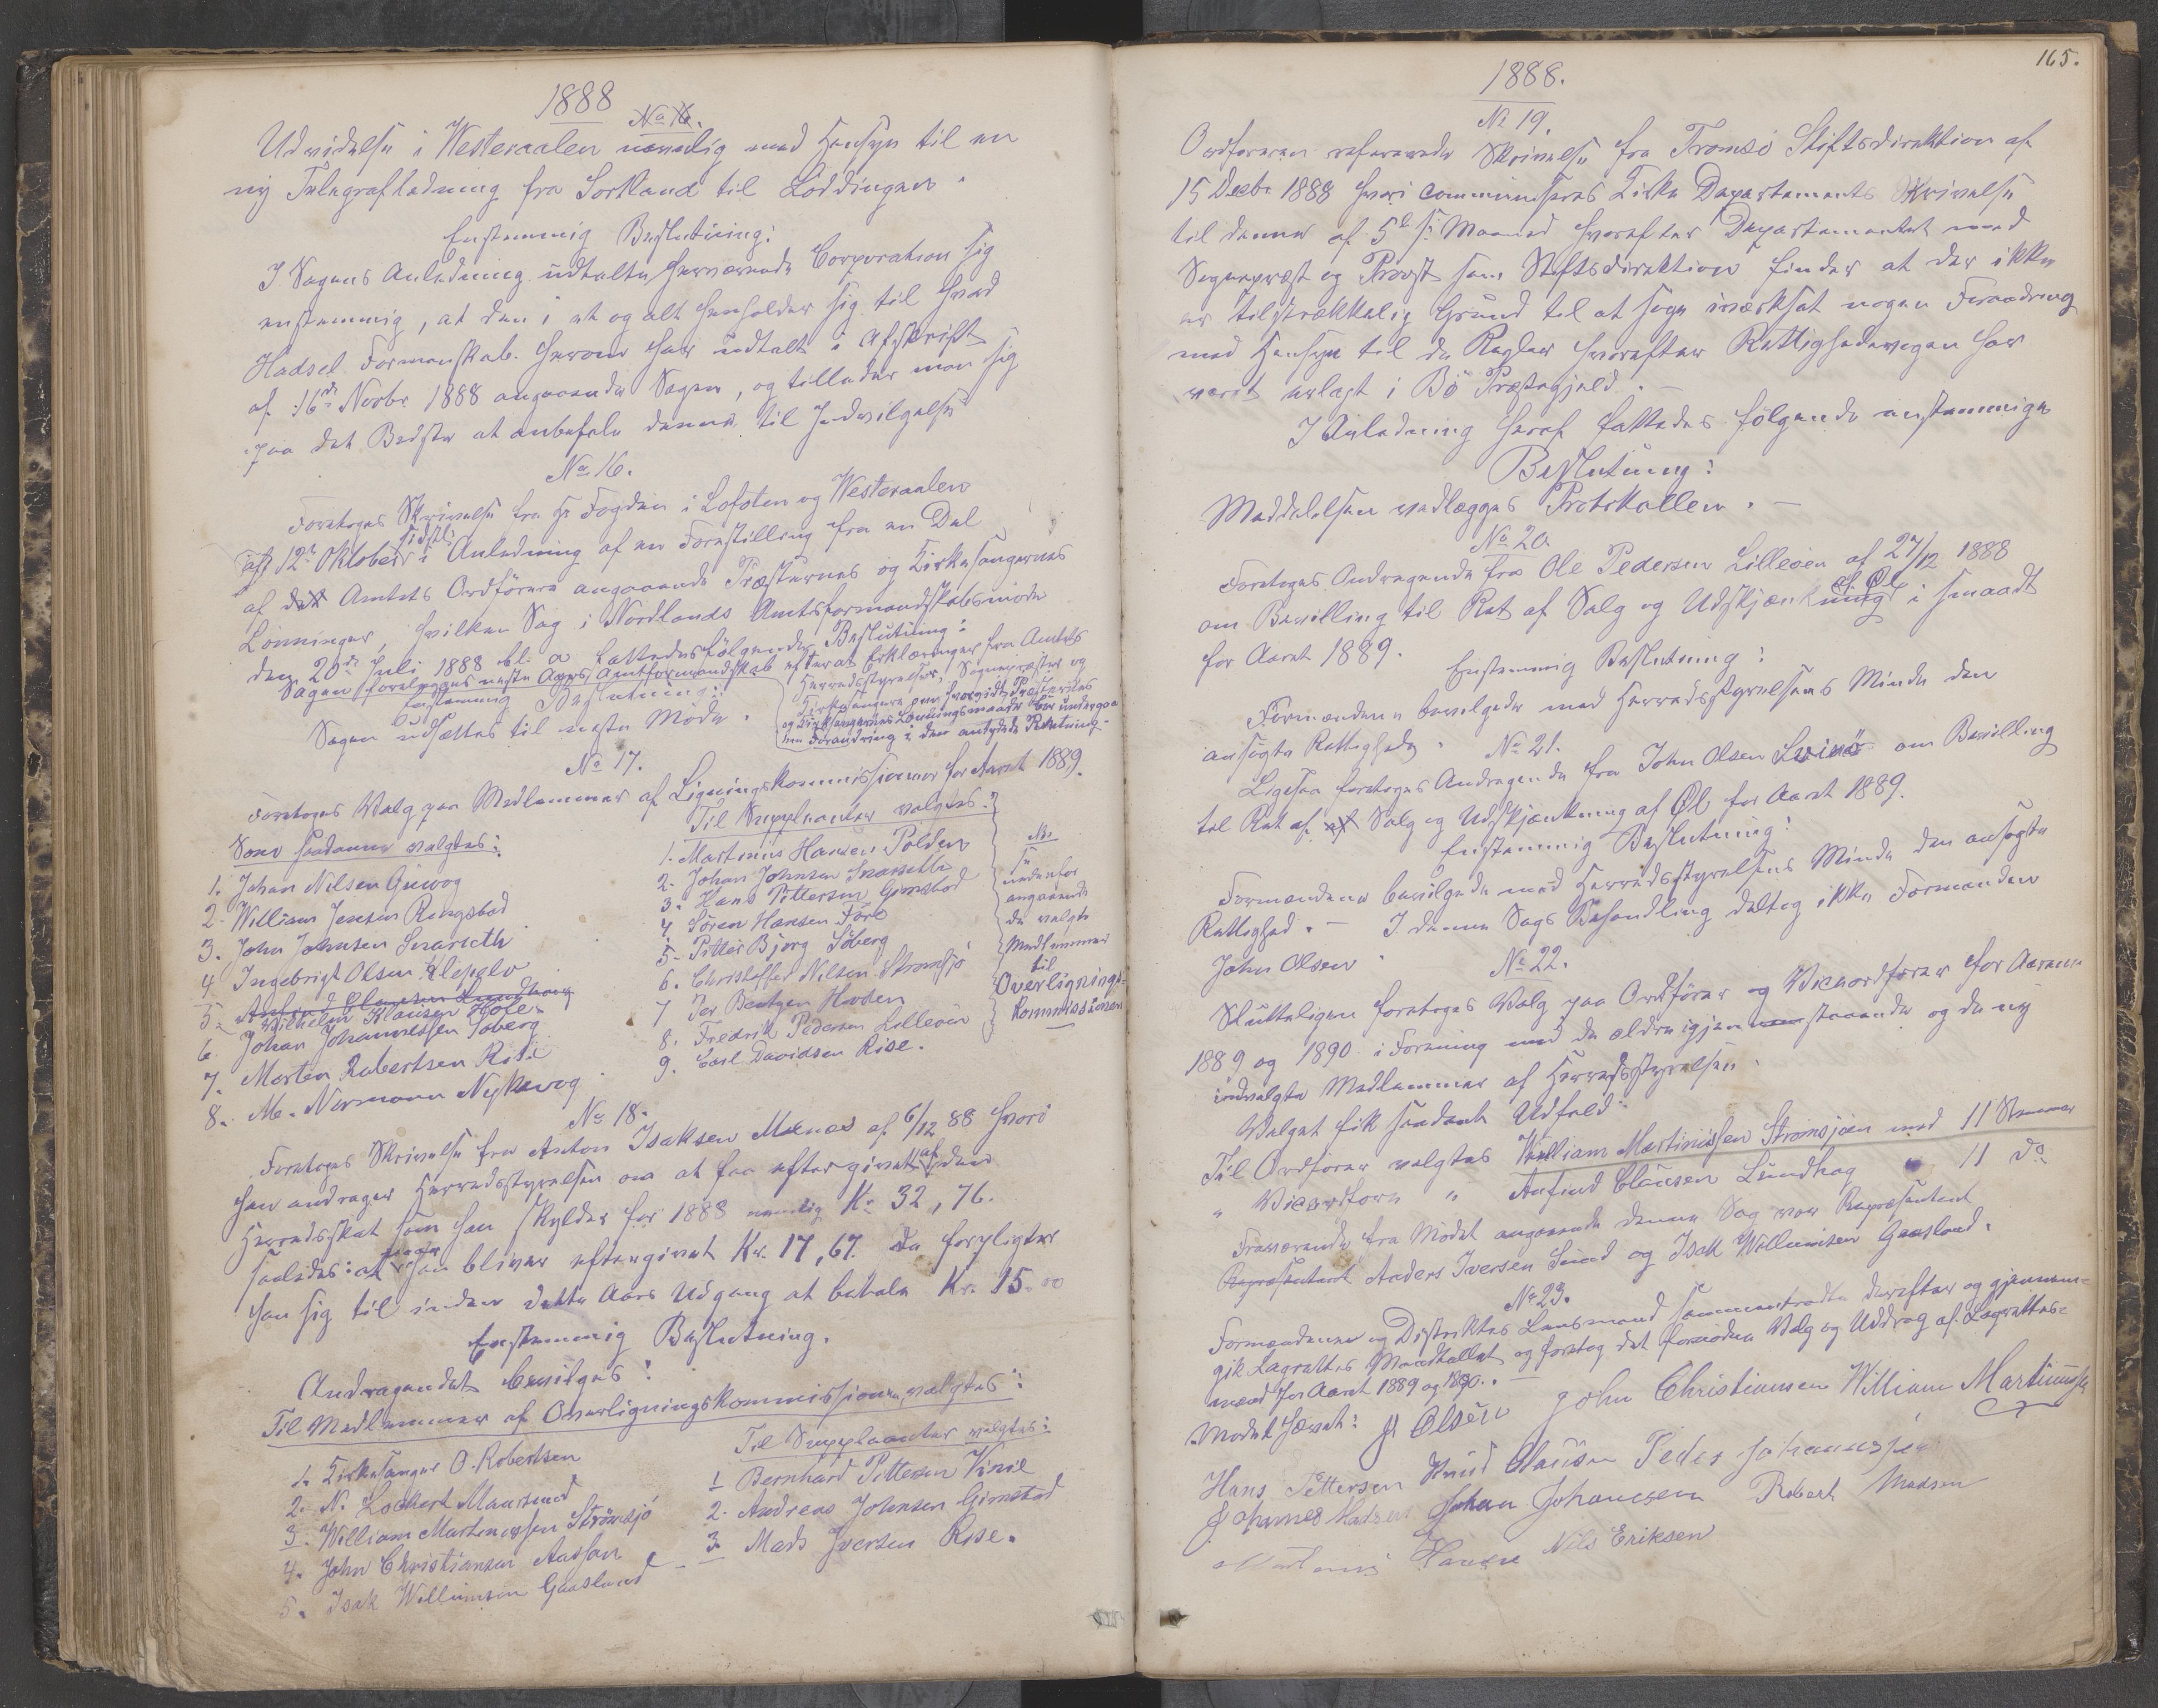 1888
No 16.
Udvidelse i Westeraalen navnlig med Hensyn til en
ny Telegrafledning fra Sortland til Löddingen.
Enstemmig Beslutning:
I Sagens Anledning udtalte herværende Corporation sig
enstemmig, at den i et og alt henholder sig til hvad
Hadsel Formanskab herom har udtalt i Afskrift
af 16de Novbr 1888 angaaende Sagen, og tillader man sig
paa det Bedste at anbefale denne til Indvilgelse
No 16.
Foretoges Skrivelse fra Hr Fogden i Lofoten og Westeraalen
af 12te Oktober sidstl. i Anledning af en Forestilling fra en Del
af det Amtets Ordförere angaaende Præsternes og Kirkesangernes
Lönninger, hvilken Sag i Nordlands Amtsformandskabsmöde
den 20de Juli 1888 bl. a. fattedes fölgende Beslutning:
Sagen forelægges neste Aars Amtformandskab efterat Erklæringer fra Amtets
Herredsstyrelser, Sognepræster og
Kirkesangere om hvorvidt Præsternes
og Kirkesangernes Lönningsmaade bör undergaa
en Forandring i den antydede Retning.
Enstemmig Beslutning:
Sagen udsættes til neste Möde.
No 17.
Foretoges Valg paa Medlemmer af Ligningskommissionen for Aaret 1889.
Som saadanne valgtes:
1. Johan Nilsen Guvog
2. William Jensen Ringstad
3. John Johnsen Snarseth
4 Ingebrigt Olsen Klepelv
5. Anfind Clausen Lundhaug
Wilhelm Klausen Hole
6. Johan Johannessen Söberg
7. Morten Robertsen Rise
8. M. Normann Nykevog
Til Suppleanter valgtes:
1. Martinus Hansen Polden
2. Johan Johnsen Snarseth
3. Hans Pettersen Gimstad
4. Sören Hansen Före
5. Petter Bjerg Söberg
6. Christoffer Nilsen Strömsjö
7 Per Bentzen Hovden
8. Fredrik Pedersen Lilleöen
9. Carl Davidsen Rise.
NB.
Se
nedenfor
angaaende
de valgte
Medlemmer
til
Overligningskommissionen
No 18.
Foretoges Skrivelse fra Anton Isaksen Mænes af 6/12 88 hvori
han andrager Herredsstyrelsen om at faa eftergivet af den
Herredsskat som han skylder for 1888 nemlig Kr 32,76.
saaledes: at han bliver eftergivet Kr. 17,67. da forpligter
han sig til inden dette Aars Udgang at betale Kr. 15.00
Enstemmig Beslutning.
Andragendet bevilges:
Til Medlemmer af Overligningskommissionen valgtes:
1. Kirkesanger O. Robertsen
2. N. Lockert Maarsund
3. William Martinussen Strömsjö
4. John Christiansen Aasan
5. Isak Willumsen Gaasland
Til Suppleanter valgtes:
1 Bernhard Pettersen Vinje
2. Andreas Johnsen Gimstad
3. Mads Iversen Rise.
165.
1888.
No 19.
Ordföreren refererede Skrivelse fra Tromsö Stiftsdirektion af
15 Decbr 1888 hvori communiseres Kirke Departements Skrivelse
til denne af 5te s. Maaned hvorefter Departementet med
Sogneprest og Provst som Stiftsdirektion finder at der ikke
er tilstrækkelig Grund til at söge iværksat nogen Forandring
med Hensyn til de Regler hvorefter Rettighedsvegen har
veret erlagt i Bö Præstegjeld.
I Anledning heraf fattedes fölgende enstemmige
Beslutning:
Meddelelsen vedlægges Protokollen.
No 20.
Foretoges Andragende fra Ole Pedersen Lilleöen af 27/12 1888
om Bevilling til Ret af Salg og Udskjænkning af Öl i smaadt
for Aaret 1889.
Enstemmig Beslutning:
Formændene bevilgede med Herredsstyrelsens Minde den
ansögte Rettighed.
No 21.
Ligesaa foretoges Andragende fra John Olsen Svinö om Bevilling
til Ret af Salg og Udskjænkning af Öl for Aaret 1889.
Enstemmig Beslutning:
Formændene bevilgede med Herredsstyrelsens Minde den ansögte
Rettighed. – I denne Sags Behandling deltog ikke Formanden
John Olsen
No 22.
Sluttelig foretoges Valg paa Ordförer og Viceordförer for Aarene
1889 og 1890 i Forening med de ældre igjenstaaende og de ny
indvalgte Medlemmer af Herredsstyrelsen.
Valget fik saadant Udfald:
Til Ordförer valgtes William Martinussen Strömsjöen med 11 Stemmer
" Viceordförer " Anfind Clausen Lundhog " 11 do
Fraværende fra Mödet angaaende denne Sag var Repræsentant
Repræsentant Anders Iversen Sund og Isak Willumsen Gaasland.
No 23.
Formændene og Distriktets Lensmand sammentraadte derefter og gjennemgik
Lagrettes Mandtallet og foretog det fornödne Valg og Uddrag af Lagrettesmænd
for Aaret 1889 og 1890.
Mödet hævet: J. Olsen John Christiansen William Martinussen
Hans Pettersen Knud Clausen Peder Johannssen
Johannes Madsen Johan Johansen Robert Madsen
Hansen Nils Eriksen